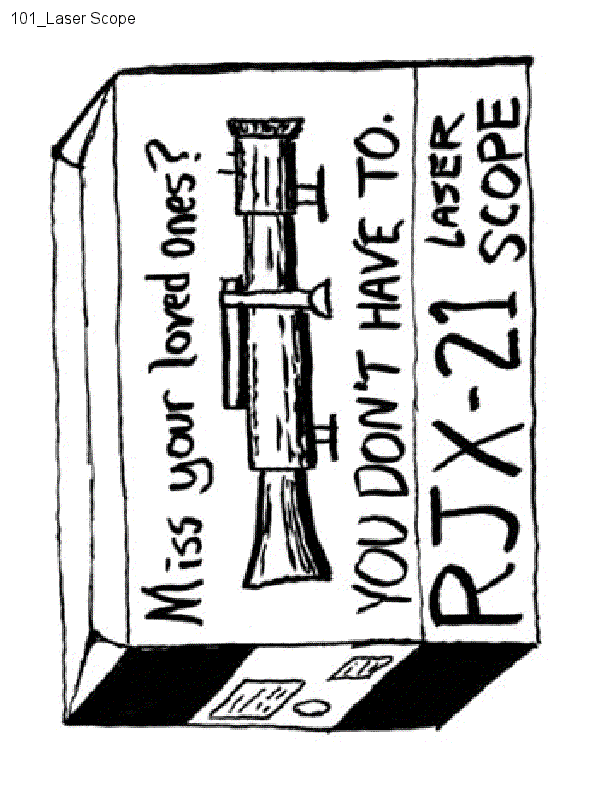 101_Laser Scope
Miss your loved ones?
YOU DON'T HAVE TO.
RJX-21 LASER
SCOPE